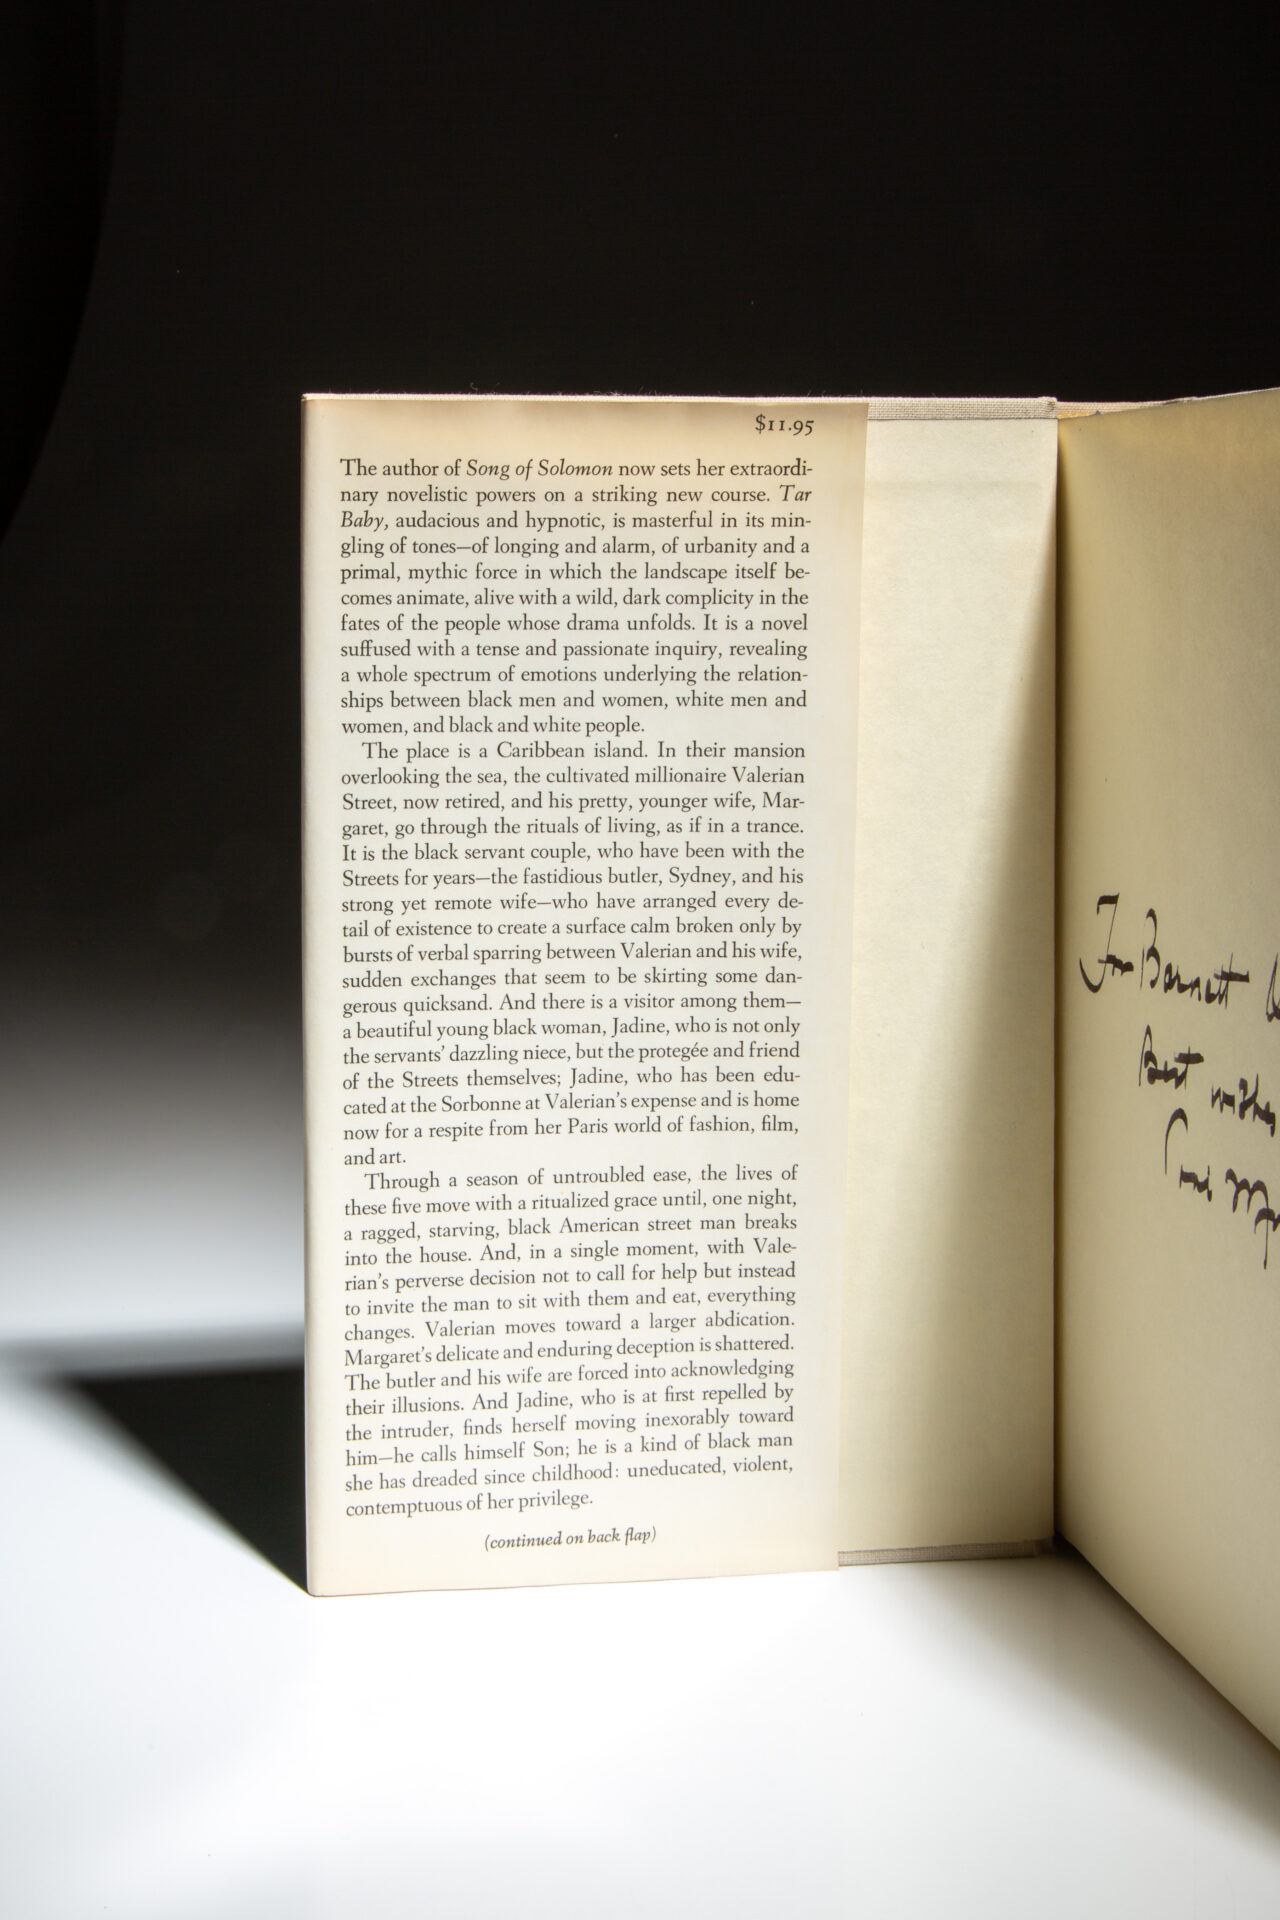 $11.95
The author of Song of Solomon now sets her extraordi-
nary novelistic powers on a striking new course. Tar
Baby, audacious and hypnotic, is masterful in its min-
gling of tones—of longing and alarm, of urbanity and a
primal, mythic force in which the landscape itself be-
comes animate, alive with a wild, dark complicity in the
fates of the people whose drama unfolds. It is a novel
suffused with a tense and passionate inquiry, revealing
a whole spectrum of emotions underlying the relation-
ships between black men and women, white men and
women, and black and white people.
The place is a Caribbean island. In their mansion
overlooking the sea, the cultivated millionaire Valerian
Street, now retired, and his pretty, younger wife, Mar-
garet, go through the rituals of living, as if in a trance.
It is the black servant couple, who have been with the
Streets for years—the fastidious butler, Sydney, and his
strong yet remote wife—who have arranged every de-
tail of existence to create a surface calm broken only by
bursts of verbal sparring between Valerian and his wife,
sudden exchanges that seem to be skirting some dan-
gerous quicksand. And there is a visitor among them—
a beautiful young black woman, Jadine, who is not only
the servants' dazzling niece, but the protegée and friend
of the Streets themselves; Jadine, who has been edu-
cated at the Sorbonne at Valerian's expense and is home
now for a respite from her Paris world of fashion, film,
and art.
Through a season of untroubled ease, the lives of
these five move with a ritualized grace until, one night,
a ragged, starving, black American street man breaks
into the house. And, in a single moment, with Vale-
rian's perverse decision not to call for help but instead
to invite the man to sit with them and eat, everything
changes. Valerian moves toward a larger abdication.
Margaret's delicate and enduring deception is shattered.
The butler and his wife are forced into acknowledging
their illusions. And Jadine, who is at first repelled by
the intruder, finds herself moving inexorably toward
him—he calls himself Son; he is a kind of black man
she has dreaded since childhood: uneducated, violent,
contemptuous of her privilege.
(continued on back flap)
For Barnett
Best wishes